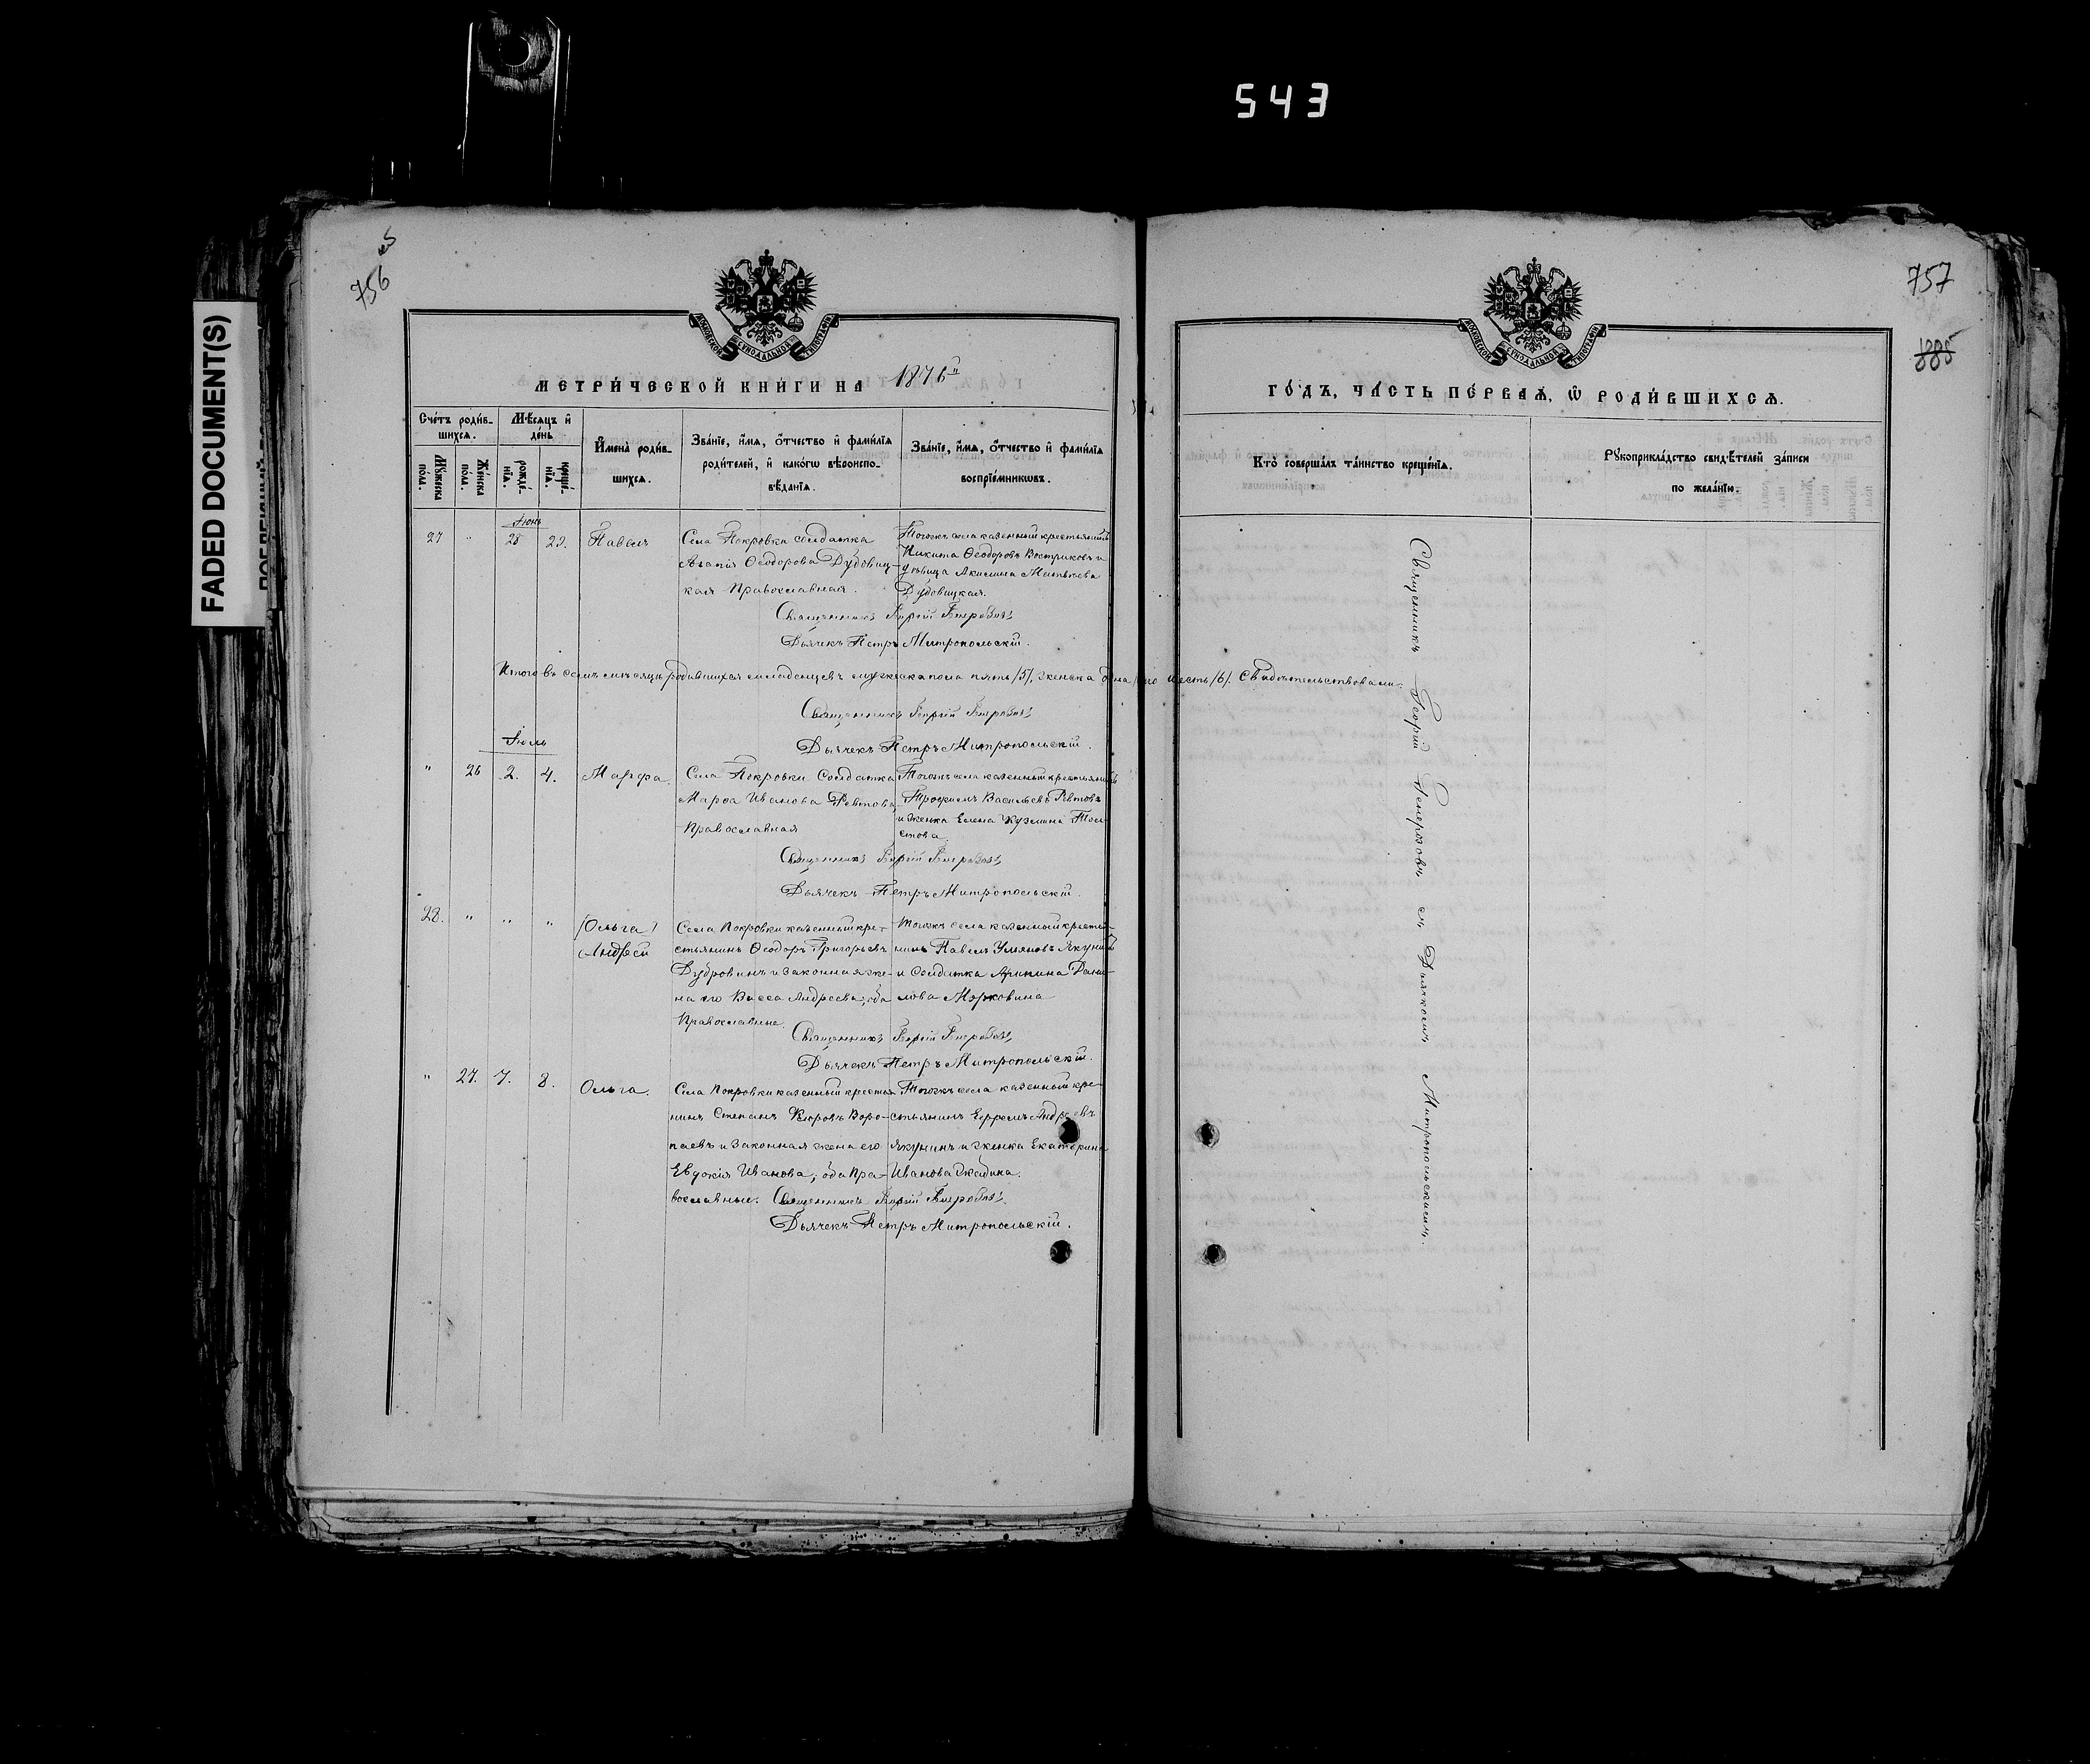 543
FADED DOCUMENT(S)
756
757
885
МОСКОВСКОЙ СѴНОДАЛЬНОЙ ТИПОГРАФІИ
МЕТРИ́ЧЕСКОЙ КНИ́ГИ НА 1876
Сче́тъ роди́в-
шихся.
Мѣ́сяцъ и҆
де́нь
Мꙋ́жеска пола.
Же́нска пола.
рожде́-
нїѧ.
креще́-
нїѧ.
И҆мена̀ роди́в-
шихся.
Зва́нїе, и҆́мѧ, ѻ҆́тчество и҆ фами́лїѧ
роди́телей, и҆ како́гѡ вѣроиспо-
вѣ́данїѧ.
Зва́нїе, и҆́мѧ, ѻ҆́тчество и҆ фами́лїѧ
воспрїе́мникѡвъ.
Іюнь
27 " 28 29. Павелъ
Села Покровки солдатка
Ѳеодорова Дубовиц-
кая Православная.
Тогожъ села казенный крестьянинъ
Никита Ѳеодоровъ Востриковъ и
Акилина Матвѣева
Дубовицкая.
Священникъ Георгій
Дьячекъ Петръ Митропольскій.
Итого въ семъ мѣсяцѣ родившихся младенцевъ мужеска пола пять /5/, женска одна шесть /6/. Свидѣтельствовали:
Священникъ Георгій
Дьячекъ Петръ Митропольскій.
Іюль
" 26 2. 4. Марфа.
Села Покровки Солдатка
Марѳа Иванова Ревтова,
Православная
Тогожъ села казенный крестьянинъ
Трофимъ Васильевъ Ревтовъ
и женка Елена Кузмина Тол-
стова.
Священникъ Георгій
Дьячекъ Петръ Митропольскій.
28. " " " /Ольга/
Андрей
Села Покровки казенный кре-
стьянинъ Ѳеодоръ Григорьевъ
Дубровинъ и законная же-
на его Васса Андреева, оба
Православные.
Тогожъ села казенный крестья-
нинъ Павелъ Якунинъ
и Солдатка Дани-
лова Морковина
Священникъ Георгій
Дьячекъ Петръ Митропольскій.
" 27. 7. 8. Ольга.
Села Покровки казенный крестья-
нинъ Степанъ Воро-
паевъ и законная жена его
Евдокія Иванова, оба Пра-
вославные.
Тогожъ села казенный кре-
стьянинъ Ефремъ Андреевъ
Якунинъ и женка Екатерина
Иванова
Священникъ Георгій
Дьячекъ Петръ Митропольскій.
МОСКОВСКОЙ СѴНОДАЛЬНОЙ ТИПОГРАФІИ
ГО́ДЪ, ЧА́СТЬ ПЕ́РВАѦ, Ѡ҆ РОДИ́ВШИХСѦ.
Кто̀ соверша́лъ та́инство креще́нїѧ.
Рꙋкоприкла́дство свидѣ́телей за́писи
по жела́нїю.
Священникъ Георгій съ Дьячкомъ Митропольскимъ.